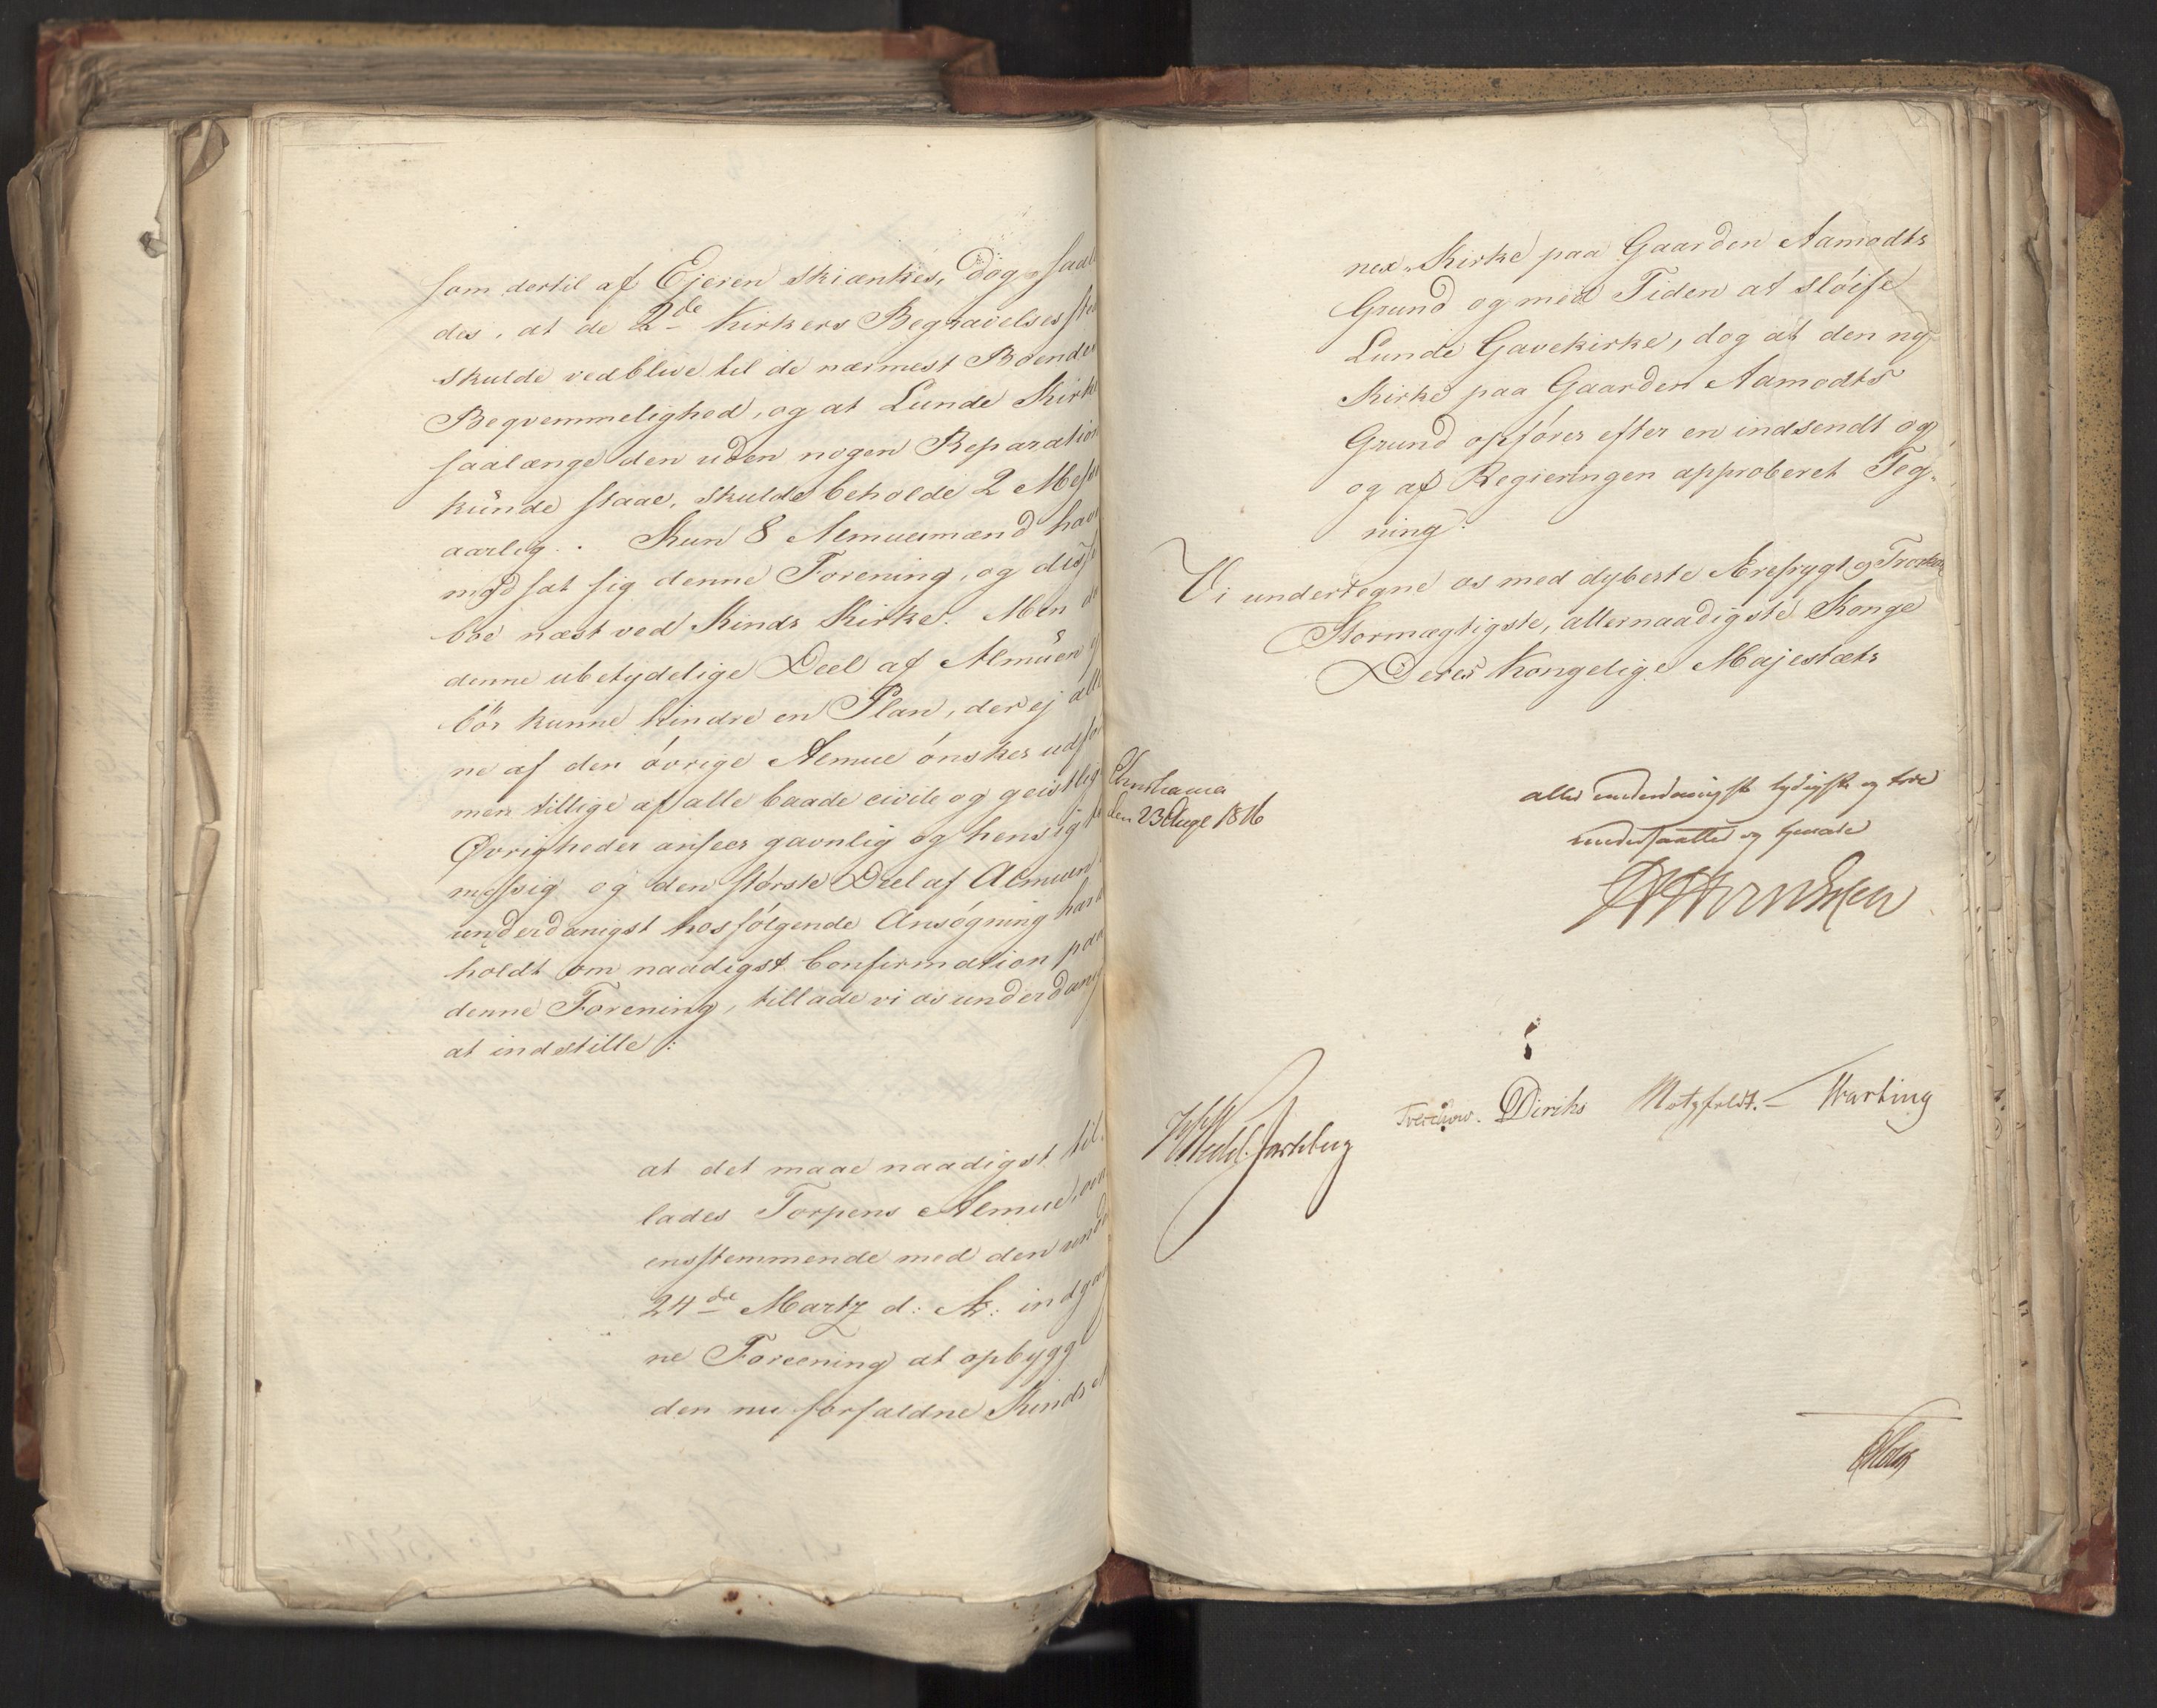 som dertil af Ejeren skiænkes, dog saale
des, at de 2de Kirkers Begravelsesste
skulde vedblive til de nærmest Boendes
Beqvemmelighed, og at Lunde Kirke
saalænge den uden nogen Reparation
kunde staae, skulde beholde 2 Messer
aarlig. Kun 8 Almuesmænd have
modsat sig denne Forening, og disse
boe næst ved Kinds Kirke. Men da
denne ubetydelige Deel af Almuen
bör kunne hindre en Plan, der ej alle
ne af den övrige Almue önskes udför
men tillige af alle baade civile og geistlige
Øvrigheder ansees gavnlig og hensigts
mæssig og den störste Deel af Almuen
underdanigst hosfölgende Ansögning har
holdt om naadigst Confirmation paa
denne Forening, tillade vi os underdanigst
at indstille:
at det maae naadigst til
lades Torpens Almue, over
ensstemmende med den under
24de Martz d: A: indgaae
ne Foreening at opbygge
den nu forfaldne Kinds A
nex-Kirke paa Gaarden Aamodts
Grund og med Tiden at slöife
Lunde Gavekirke, dog at den nye
Kirke paa Gaarden Aamodts
Grund opföres efter en indsendt og
og af Regieringen approberet Teg-
ning.
Vi undertegne os med dybeste Ærefrygt og Troskab
Stormægtigste, allernaadigste Konge
Deres Kongelige Majestæts
Christiania
den 23 Aug. 1816
allerunderdanigste lydigste og troe
undersaatter og tjenere
Wedel Jarlsberg
Diriks Motzfeldt.